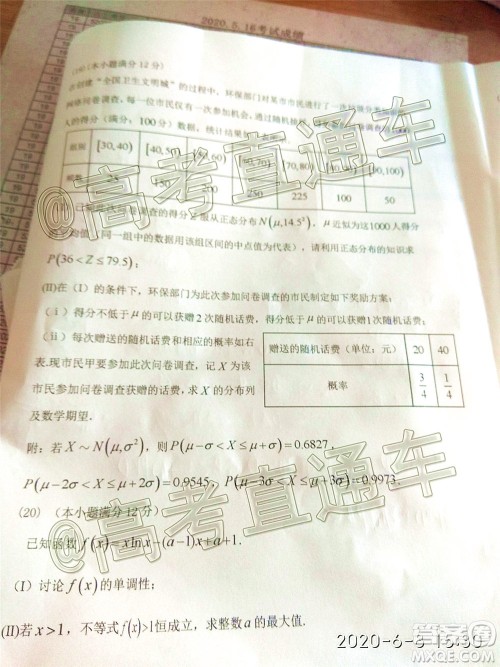 2020.5.16考试成绩
(19)(本小题满分12分)
在创建“全国卫生文明城”的过程中，环保部门对某市市民进行了一次
网络问卷调查，每一位市民仅有一次参加机会，通过随机抽样，
人的得分(满分：100分)数据，统计结果如下
[30,40) [40,50) 60) 70) [70,80) [90,100)
25 150 200 250 225 100 50
(I)已知此次问卷调查的得分Z服从正态分布N(μ,14.5²)，μ近似为这1000人得分
的平均值(同一组中的数据用该组区间的中点值为代表)，请利用正态分布的知识求
P(36<Z≤79.5)；
(II)在(I)的条件下，环保部门为此次参加问卷调查的市民制定如下奖励方案：
(i)得分不低于μ的可以获赠2次随机话费，得分低于μ的可以获赠1次随机话费；
(ii)每次赠送的随机话费和相应的概率如右
表.现市民甲要参加此次问卷调查，记X为该
市民参加问卷调查获赠的话费，求X的分布列
及数学期望.
赠送的随机话费(单位：元) 20 40
概率 3/4 1/4
附：若X~N(μ,σ²)，则P(μ-σ<X≤μ+σ)=0.6827，
P(μ-2σ<X≤μ+2σ)=0.9545，P(μ-3σ<X≤μ+3σ)=0.9973.
(20)(本小题满分12分)
已知函数f(x)=xlnx-(a-1)x+a+1.
(I)讨论f(x)的单调性；
(II)若x>1，不等式f(x)>1恒成立，求整数a的最大值.
@高考直通车
@高考直通车
@高考直通车
MXQE.COM